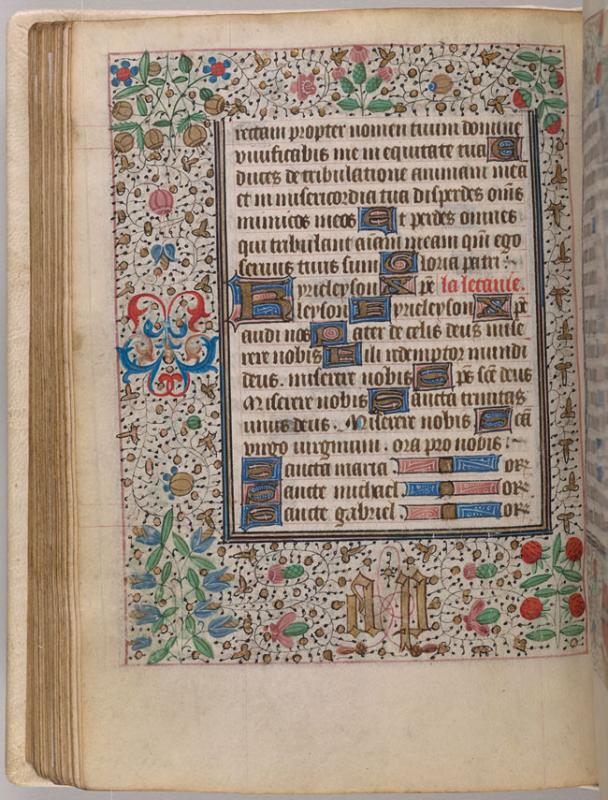 rectam propter nomen tuum domine
viuificabis me in equitate tua E
duces de tribulatione animam mea
et in misericordia tua disperdes oms
inimicos meos Et perdes omnes
qui tribulant aiam meam qm ego
seruus tuus sum Gloria patri
Kyrieleyson Xpe la letanie.
kleyson Kyrieleyson Xpe
audi nos Pater de celis deus mise
rere nobis Fili redemptor mundi
deus. miserere nobis Sps sce deus
Miserere nobis Sancta trinitas
unus deus. Miserere nobis Sca
virgo virginum. ora pro nobis
Sancta maria or
Sancte michael or
Sancte gabriel or